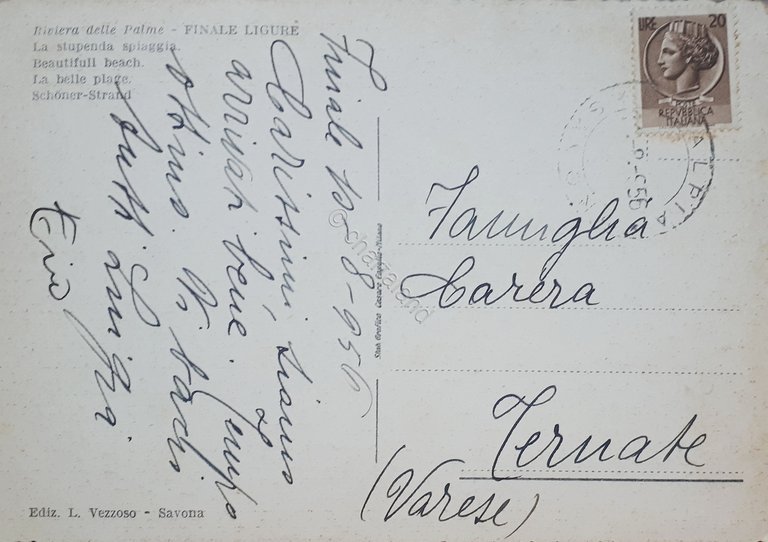 Riviera delle Palme - FINALE LIGURE
La stupenda spiaggia.
Beautifull beach.
La belle plage.
Schöner-Strand
Finale 10-8-956
Carissimi, siamo
arrivati bene. Tempo
ottimo. Vi bacio
tutti Luigia.
Ezio
Stab. Grafico Cesare Capello-Milano
LIRE 20
POSTE
REPVBBLICA
ITALIANA
Famiglia
Carera
Ternate
(Varese)
Ediz. L. Vezzoso - Savona